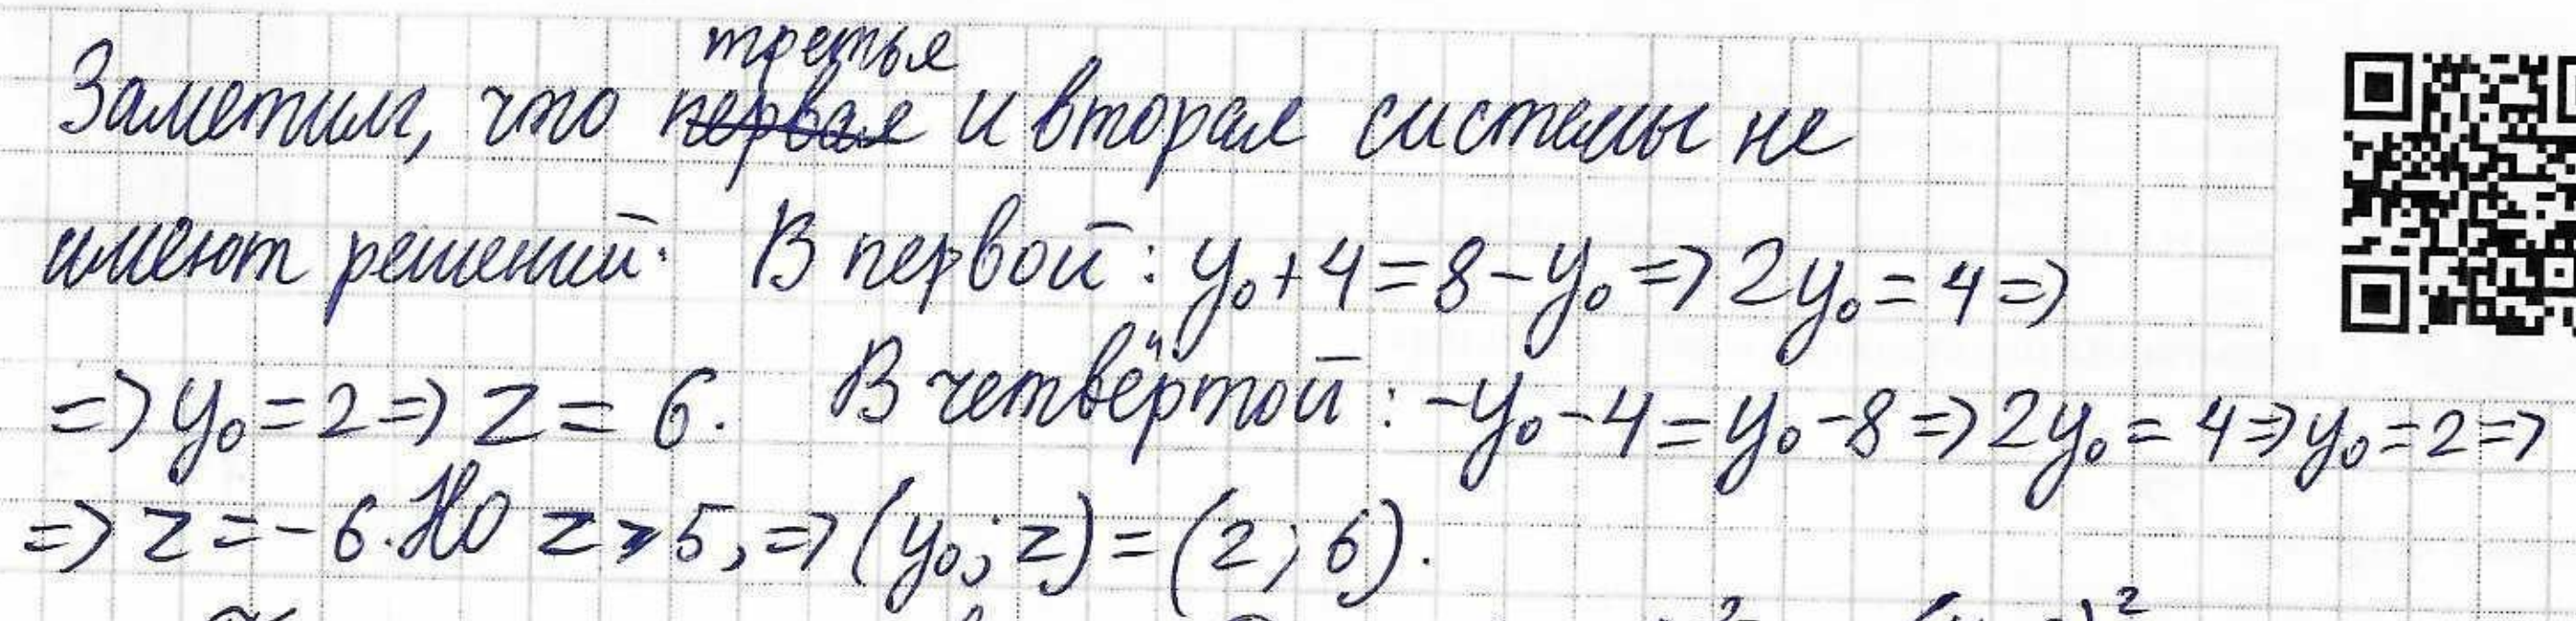 третья
Заметим, что первая и вторая системы не
имеют решений. В первой: y₀+4=8-y₀=>2y₀=4=>
=>y₀=2=>z=6. В четвёртой: -y₀-4=y₀-8=>2y₀=4=>y₀=2=>
=>z=-6. Но z>5,=>(y₀;z)=(2;6).